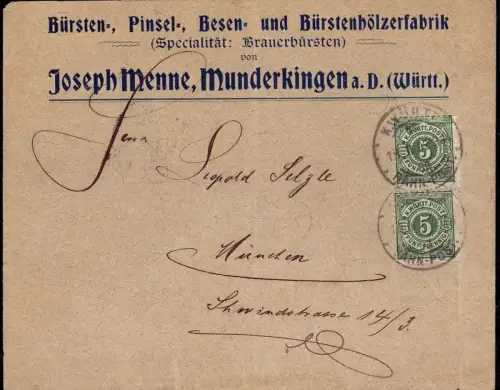 Bürsten-, Pinsel-, Besen- und Bürstenhölzerfabrik
(Specialität: Brauerbürsten)
von
Joseph Menne, Munderkingen a. D. (Württ.)
Herrn
Leopold Selzle
München
Schwindstrasse 14/3.
K. WÜRTT. POST
5
FÜNF PFENNIG
BAHN-POST
K. WÜRTT. POST
5
FÜNF PFENNIG
BAHN-POST